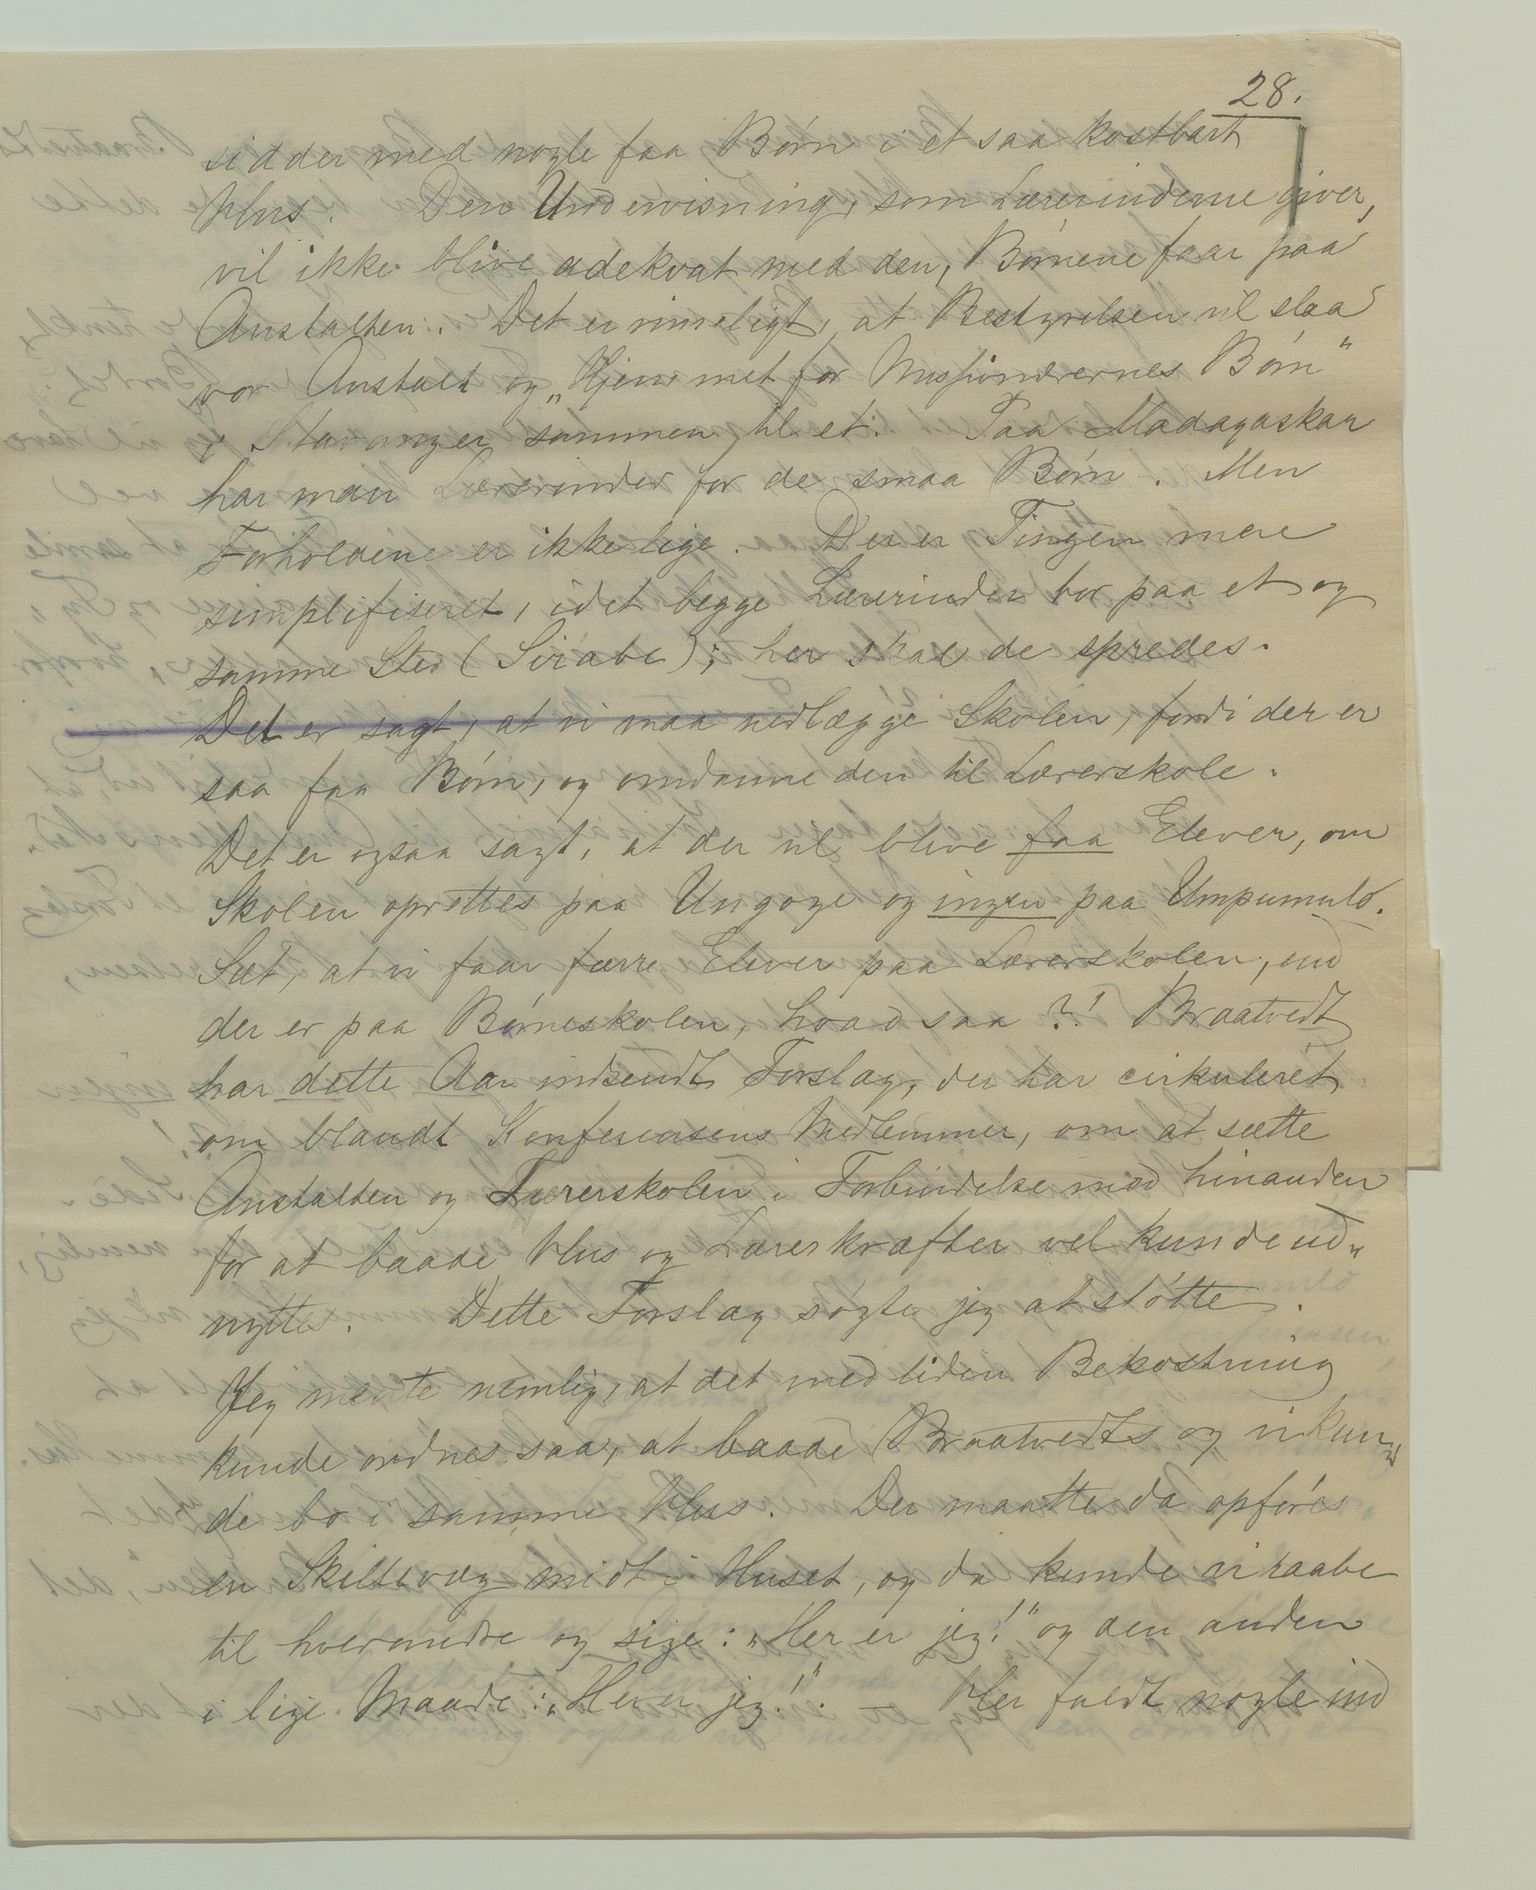 28.
sidder med nogle faa Børn i et saa kostbart
Hus. Den Undervisning, som Lærerinderne giver,
vil ikke blive adekvat med den, Børnene faar paa
Anstalten. Det er rimeligt, at Bestyrelsen vil slaa
vor Anstalt og „Hjemmet for Missionærernes Børn"
i Stavanger sammen til et. Paa Madagaskar
har man Lærerinder for de smaa Børn. Men
Forholdene er ikke lige. Der er Tingen mere
simplifiseret, idet begge Lærerinder bor paa et og
samme Sted (Sirabe); her skal de spredes.
Det er sagt, at vi maa nedlægge Skolen, fordi der er
saa faa Børn, og omdanne den til Lærerskole.
Det er ogsaa sagt, at der vil blive faa Elever, om
Skolen oprettes paa Ungoye og ingen paa Umpumulo.
Sæt, at vi faar færre Elever paa Lærerskolen, end
der er paa Børneskolen, hvad saa?! Braatvedt
har dette Aar indsendt Forslag, der har cirkuleret
om blandt Konferensens Medlemmer, om at sætte
Anstalten og Lærerskolen i Forbindelse med hinanden
for at baade Hus og Lærerkræfter vel kunde ud„
nyttes. Dette Forslag søgte jeg at støtte.
Jeg mente nemlig, at det med liden Bekostning
kunde ordnes saa, at baade Braatvedts og vi kun„
de bo i samme Hus. Der maatte da opføres
en Skillevæg midt i Huset, og da kunde vi raabe
til hverandre og sige: „Her er jeg!" og den anden
i lige Maade: „Her er jeg!". — Her faldt nogle ind